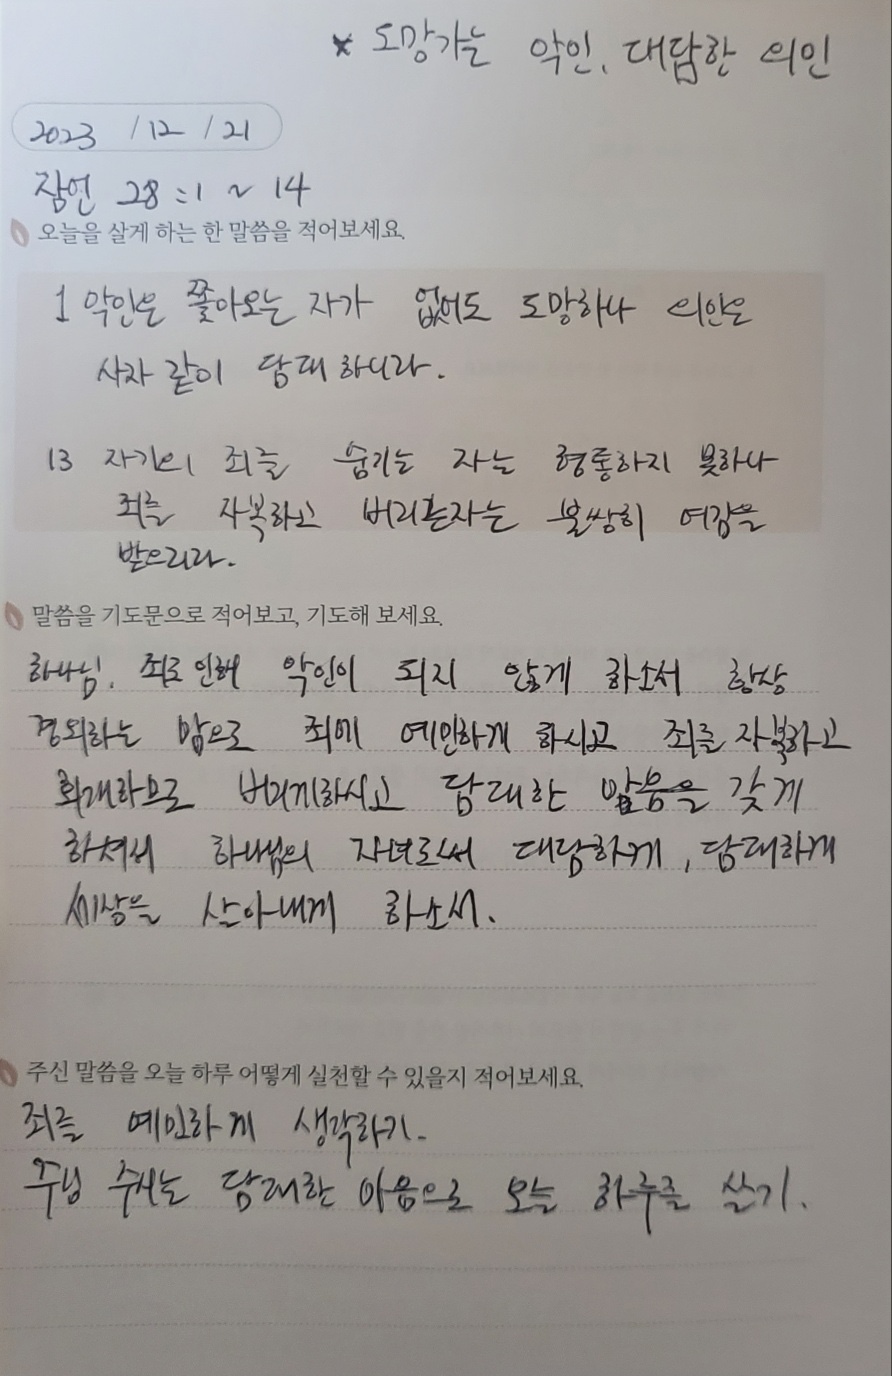 * 도망가는 악인, 대담한 의인
2023 /12 /21
잠언 28:1 ~ 14
오늘을 살게 하는 한 말씀을 적어보세요.
1 악인은 쫓아오는 자가 없어도 도망하나 의인은
사자 같이 담대 하니라.
13 자기의 죄를 숨기는 자는 형통하지 못하나
죄를 자복하고 버리는자는 불쌍히 여김을
받으리라.
말씀을 기도문으로 적어보고, 기도해 보세요.
하나님. 죄로 인해 악인이 되지 않게 하소서 항상
경외하는 맘으로 죄에 예민하게 하시고 죄를 자복하고
회개하므로 버리게하시고 담대한 맘을 갖게
하셔서 하나님의 자녀로써 대담하게, 담대하게
세상을 살아내게 하소서.
주신 말씀을 오늘 하루 어떻게 실천할 수 있을지 적어보세요.
죄를 예민하게 생각하기.
주님 주시는 담대한 마음으로 오늘 하루를 살기.